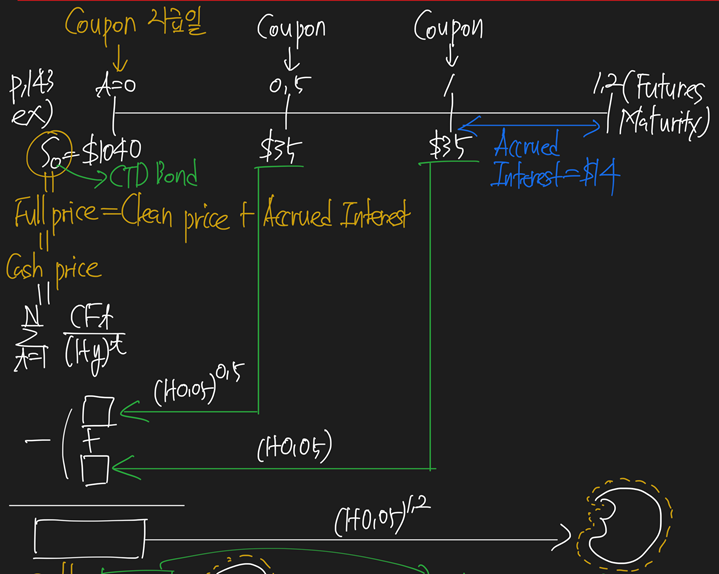 Coupon 지급일 Coupon Coupon
p.143 t=0 0.5 1 1.2(Futures
ex) Maturity)
S₀=$1040 $35 $35 Accrued
CTD Bond Interest=$14
Full price=Clean price + Accrued Interest
||
Cash price
||
N
Σ CFt
t=1 (1+y)^t
(1+0.05)^0.5
- ( +
(1+0.05)
(1+0.05)^1.2